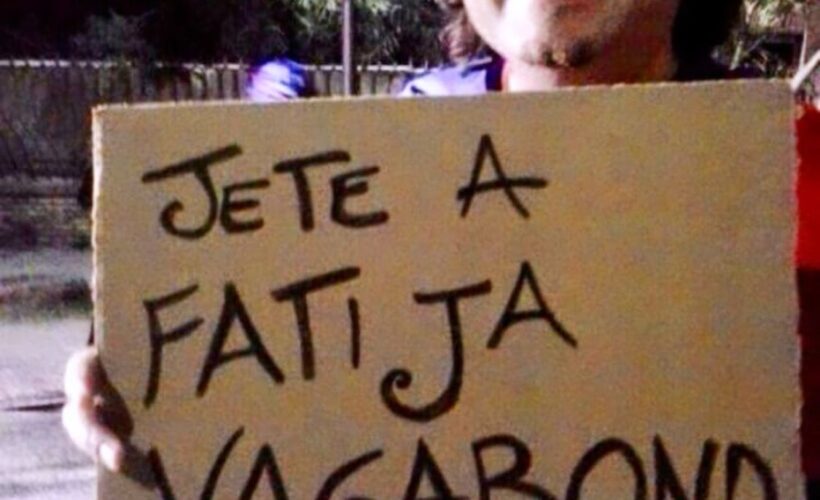 JETE A
FATIJA
VAGABOND